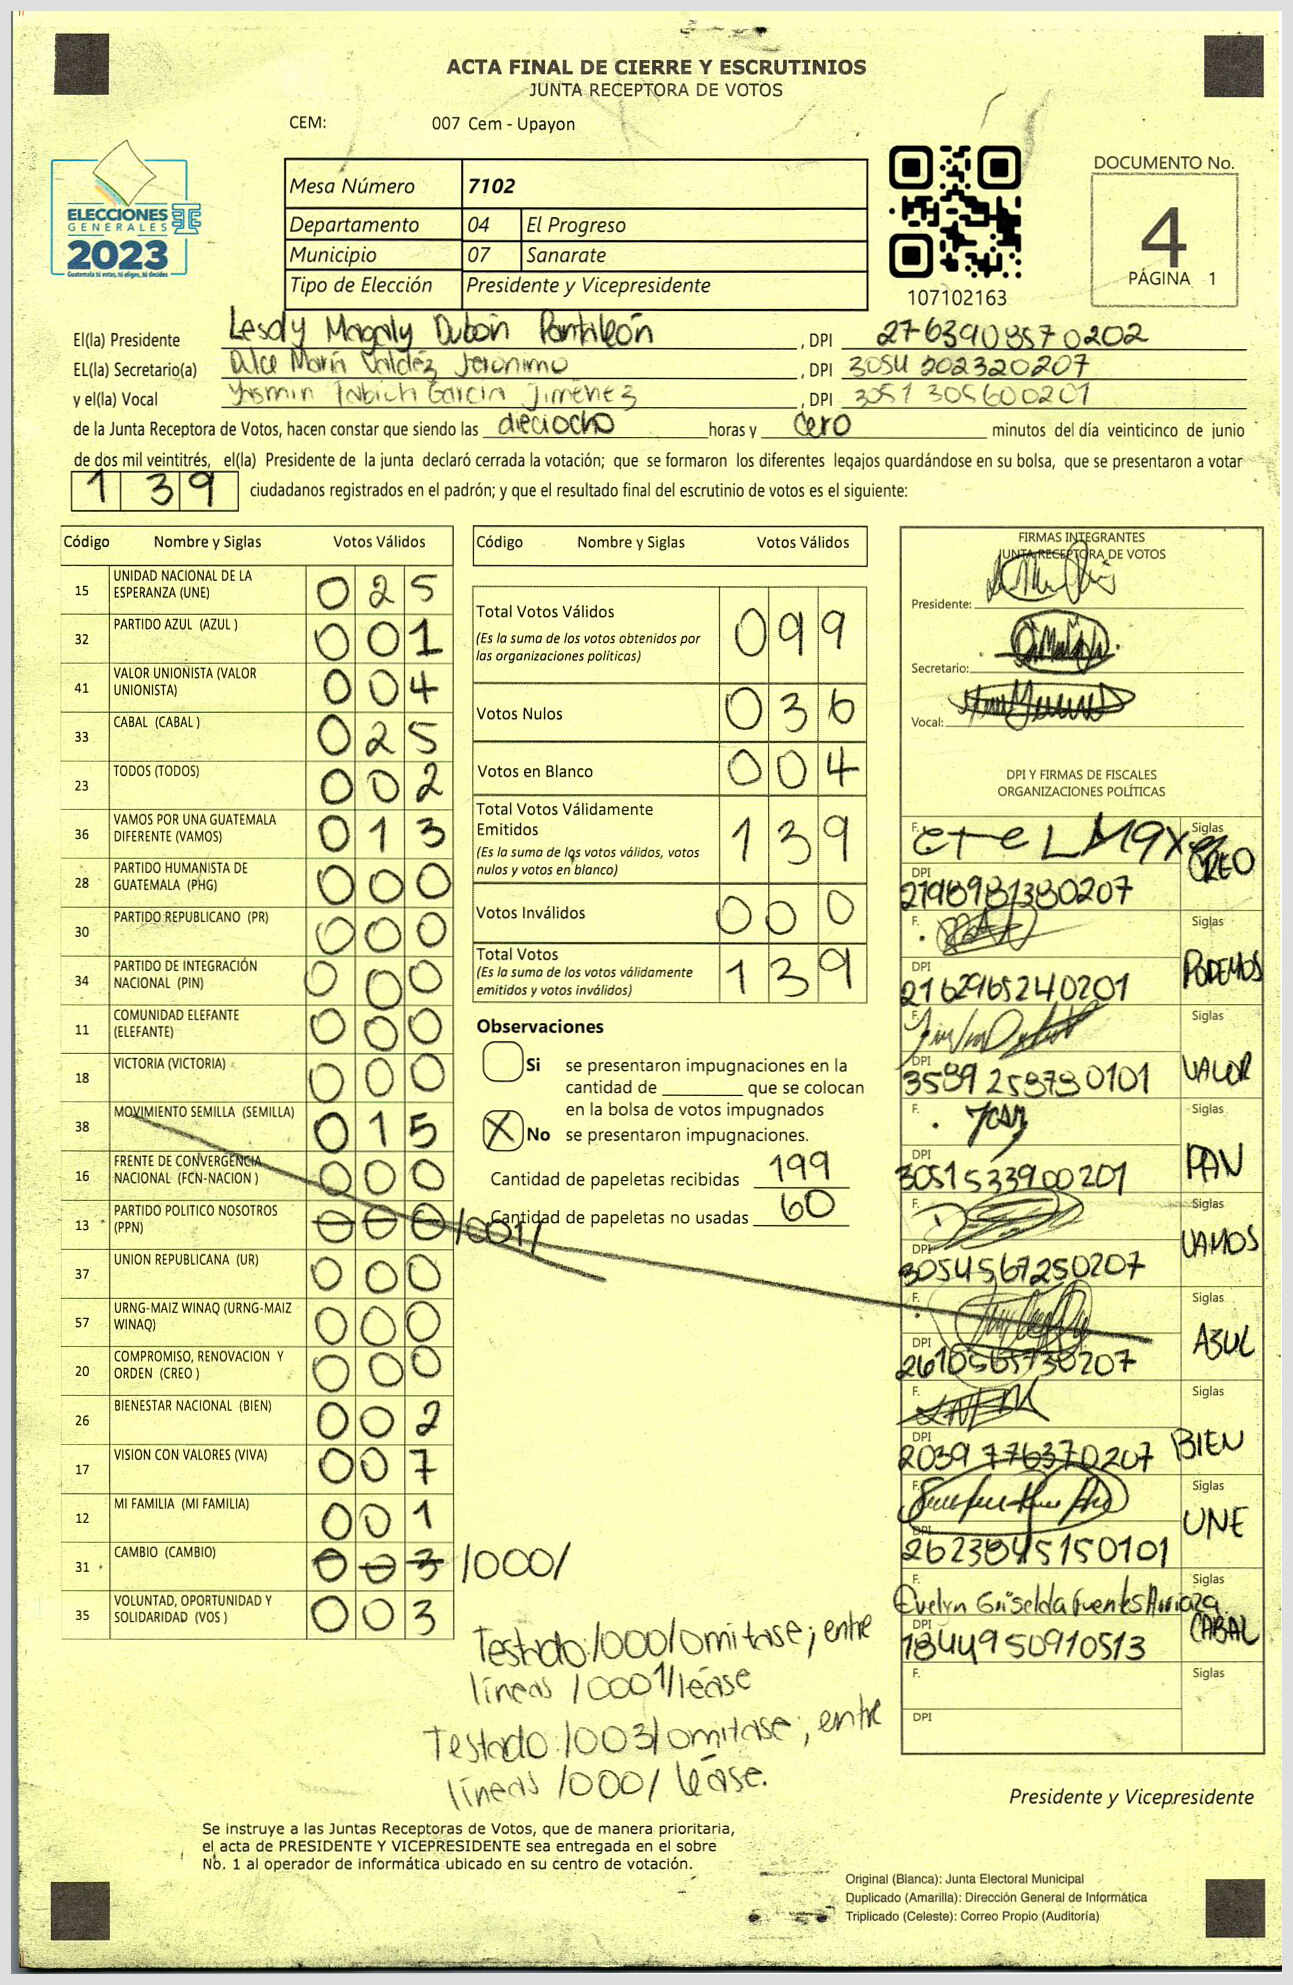 ACTA FINAL DE CIERRE Y ESCRUTINIOS
JUNTA RECEPTORA DE VOTOS
CEM: 007 Cem - Upayon
ELECCIONES
GENERALES
2023
Guatemala tú votas, tú eliges, tú decides
Mesa Número 7102
Departamento 04 El Progreso
Municipio 07 Sanarate
Tipo de Elección Presidente y Vicepresidente
107102163
DOCUMENTO No.
4
PÁGINA 1
El(la) Presidente Lesdy Magaly Dubón Pantaleón, DPI 2763908570202
EL(la) Secretario(a) Dulce María Valdéz Jeronimo, DPI 3054 202320207
y el(la) Vocal Yasmin García Jiménez, DPI 3051 305600201
de la Junta Receptora de Votos, hacen constar que siendo las dieciocho horas y cero minutos del día veinticinco de junio
de dos mil veintitrés, el(la) Presidente de la junta declaró cerrada la votación; que se formaron los diferentes legajos guardándose en su bolsa, que se presentaron a votar
1 3 9 ciudadanos registrados en el padrón; y que el resultado final del escrutinio de votos es el siguiente:
Código Nombre y Siglas Votos Válidos
15 UNIDAD NACIONAL DE LA ESPERANZA (UNE) 0 2 5
32 PARTIDO AZUL (AZUL ) 0 0 1
41 VALOR UNIONISTA (VALOR UNIONISTA) 0 0 4
33 CABAL (CABAL ) 0 2 5
23 TODOS (TODOS) 0 0 2
36 VAMOS POR UNA GUATEMALA DIFERENTE (VAMOS) 0 1 3
28 PARTIDO HUMANISTA DE GUATEMALA (PHG) 0 0 0
30 PARTIDO REPUBLICANO (PR) 0 0 0
34 PARTIDO DE INTEGRACIÓN NACIONAL (PIN) 0 0 0
11 COMUNIDAD ELEFANTE (ELEFANTE) 0 0 0
18 VICTORIA (VICTORIA) 0 0 0
38 MOVIMIENTO SEMILLA (SEMILLA) 0 1 5
16 FRENTE DE CONVERGENCIA NACIONAL (FCN-NACION ) 0 0 0
13 PARTIDO POLITICO NOSOTROS (PPN) 0 0 0 /001/
37 UNION REPUBLICANA (UR) 0 0 0
57 URNG-MAIZ WINAQ (URNG-MAIZ WINAQ) 0 0 0
20 COMPROMISO, RENOVACION Y ORDEN (CREO ) 0 0 0
26 BIENESTAR NACIONAL (BIEN) 0 0 2
17 VISION CON VALORES (VIVA) 0 0 7
12 MI FAMILIA (MI FAMILIA) 0 0 1
31 CAMBIO (CAMBIO) 0 0 3 /000/
35 VOLUNTAD, OPORTUNIDAD Y SOLIDARIDAD (VOS ) 0 0 3
Código Nombre y Siglas Votos Válidos
Total Votos Válidos 0 9 9
(Es la suma de los votos obtenidos por
las organizaciones políticas)
Votos Nulos 0 3 6
Votos en Blanco 0 0 4
Total Votos Válidamente
Emitidos 1 3 9
(Es la suma de los votos válidos, votos
nulos y votos en blanco)
Votos Inválidos 0 0 0
Total Votos 1 3 9
(Es la suma de los votos válidamente
emitidos y votos inválidos)
Observaciones
Si se presentaron impugnaciones en la
cantidad de ________ que se colocan
en la bolsa de votos impugnados
X No se presentaron impugnaciones.
Cantidad de papeletas recibidas 199
Cantidad de papeletas no usadas 60
Testado:/000/omitase; entre
líneas /0001/léase
Testado:/003/omitase; entre
líneas /000/ léase.
FIRMAS INTEGRANTES
JUNTA RECEPTORA DE VOTOS
Presidente:
Secretario:
Vocal:
DPI Y FIRMAS DE FISCALES
ORGANIZACIONES POLÍTICAS
F. Siglas CREO
DPI 2198981380207
F. Siglas PODEMOS
DPI 2162965240201
F. Siglas VALOR
DPI 3589 258780101
F. Siglas PAN
DPI 3051533900201
F. Siglas VAMOS
DPI 3054567250207
F. Siglas AZUL
DPI 2610565730207
F. Siglas BIEN
DPI 2039 776370207
F. Siglas UNE
DPI 2623845150101
F. Evelyn Griselda Fuentes Arriaza Siglas CABAL
DPI 1844950910513
F. Siglas
DPI
Presidente y Vicepresidente
Se instruye a las Juntas Receptoras de Votos, que de manera prioritaria,
el acta de PRESIDENTE Y VICEPRESIDENTE sea entregada en el sobre
No. 1 al operador de informática ubicado en su centro de votación.
Original (Blanca): Junta Electoral Municipal
Duplicado (Amarilla): Dirección General de Informática
Triplicado (Celeste): Correo Propio (Auditoría)